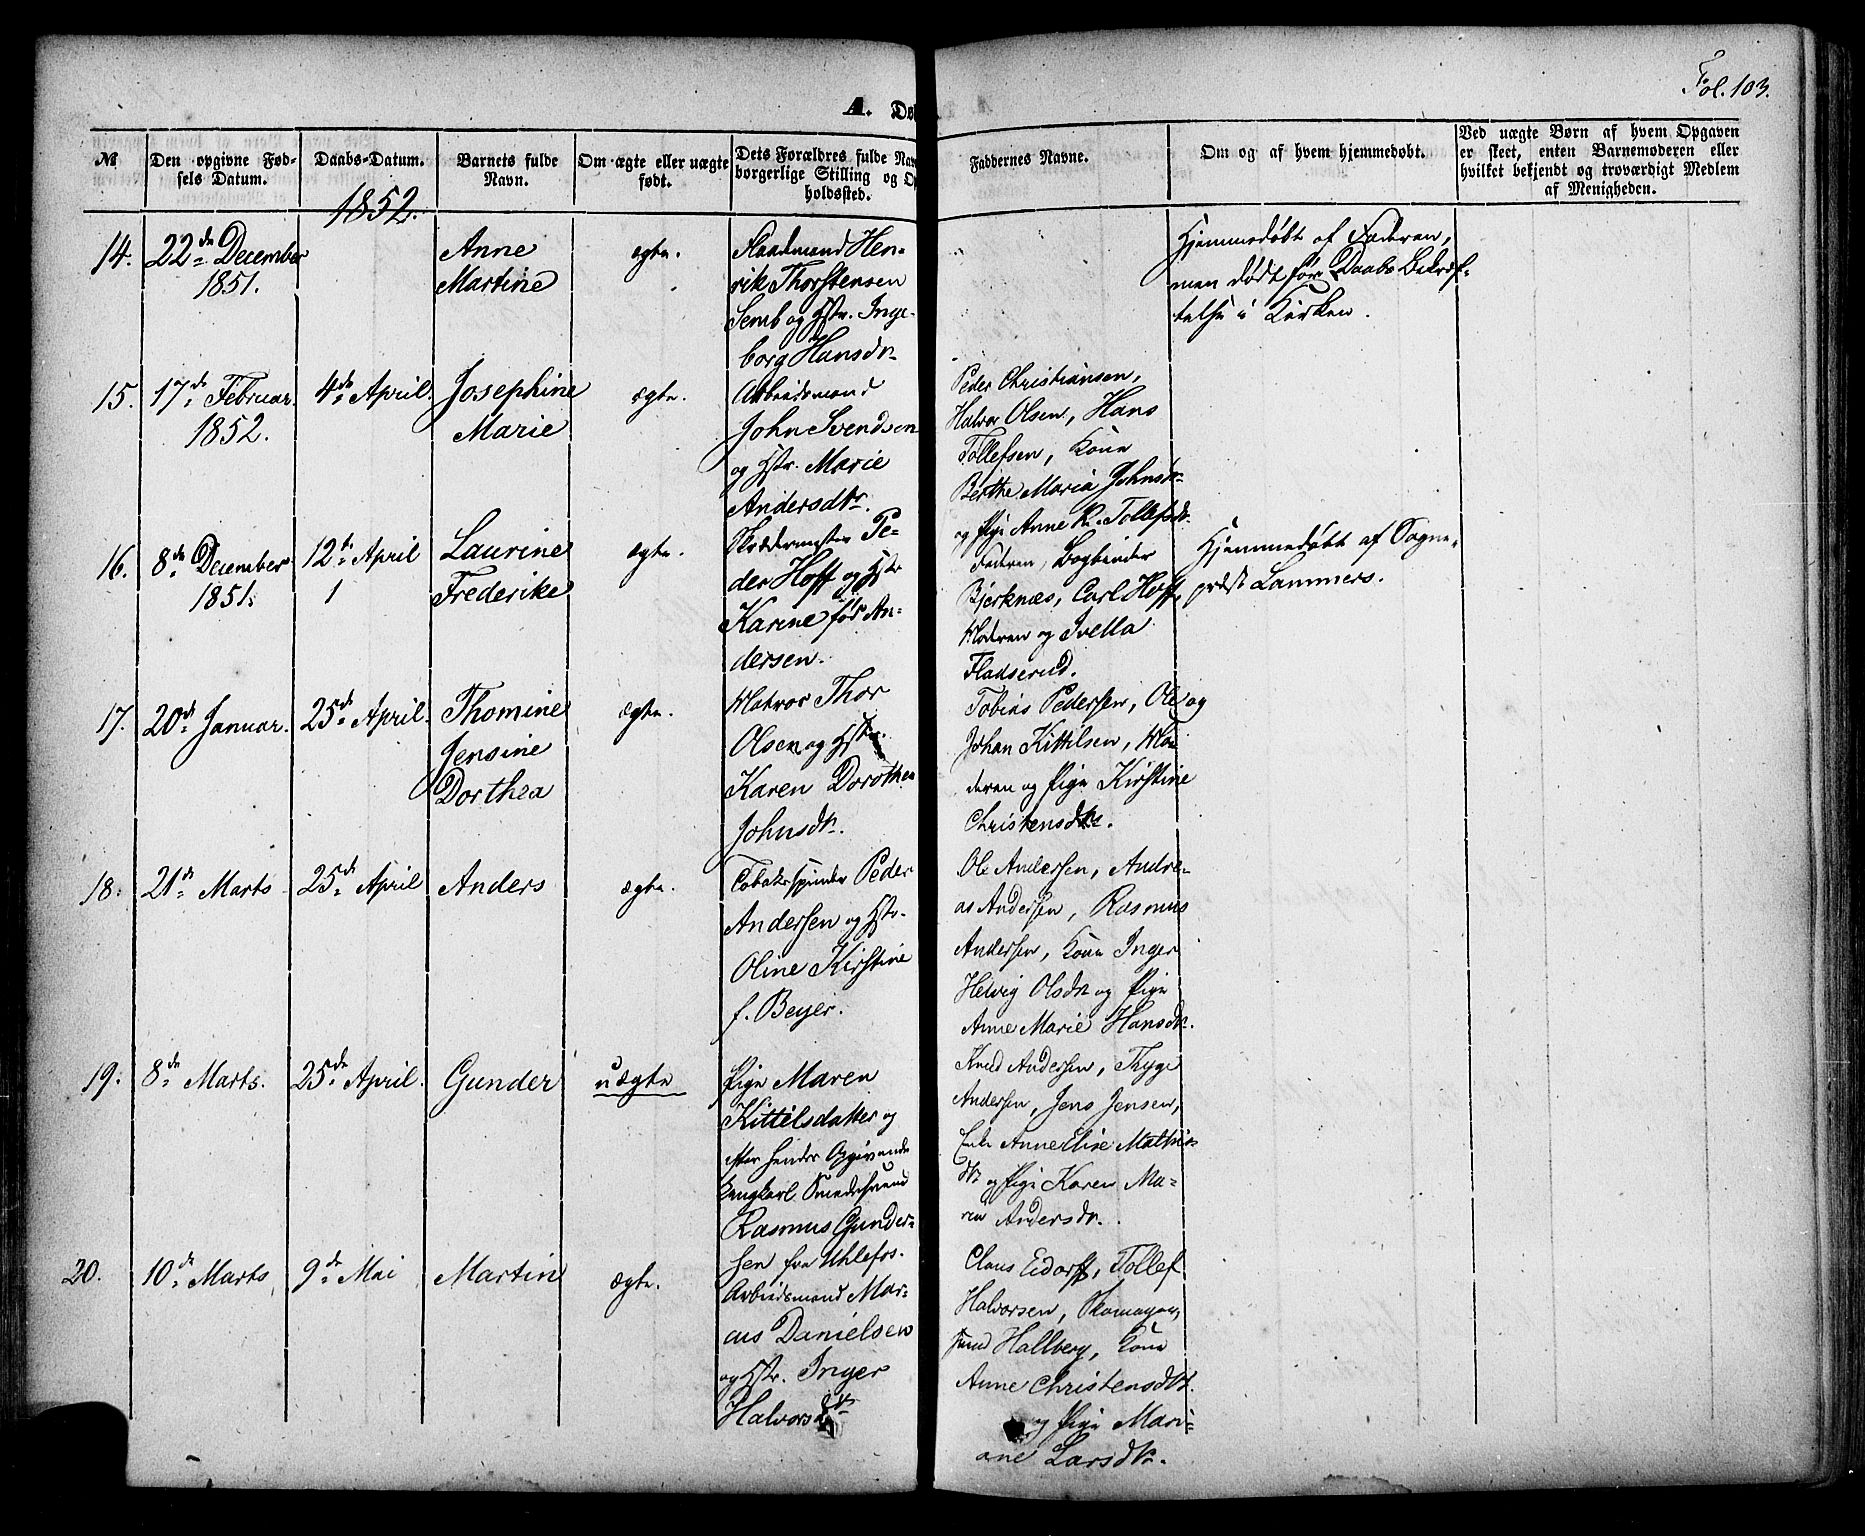 Fol. 103.
A. Dø
№
Den opgivne Fød-
sels Datum.
Daabs-Datum.
Barnets fulde
Navn.
Om ægte eller uægte
født.
Dets Forældres fulde Nav
borgerlige Stilling og Op
holdssted.
Faddernes Navne.
Om og af hvem hjemmedøbt.
Ved uægte Børn af hvem Opgaven
er skeet, enten Barnemoderen eller
hvilket bekjendt og troværdigt Medlem
af Menigheden.
1852.
14.
22de December
1851.
Anne
Martine
ægte.
Hen-
rik Thorstensen
Semb og Hstr. Inge-
borg Hansdr
Hjemmedøbt af Faderen,
men dødt før Daabs Bekræf-
telse i Kirken.
15.
17de Februar
1852.
4de April.
Josephine
Marie
ægte.
Arbeidsmand
John Svendsen
og Hstr. Marie
Andersdtr.
Peder Christiansen,
Halvor Olsen, Hans
Tollefsen, Kone
Berthe Maria Johnsdr
og Pige Anne K. Tollefsdr.
16.
8de December
1851.
12te April
1
Laurine
Frederike
ægte.
Skrædermester Pe-
der Hoff og Hstr
Karine fød An-
dersen.
Faderen, Bogbinder
Bjerknæs, Carl Hoff,
Moderen og
Fladserud.
Hjemmedøbt af Sogne-
præst Lammers.
17.
20de Januar.
25de April.
Thomine
Jensine
Dorthea
ægte.
Matros Thor
Olsen og Hstr.
Karen Dorothea
Johnsdr.
Tobias Pedersen, Ole og
Johan Kittilsen, Mo-
deren og Pige Kirstine
Christensdtr.
18.
21de Marts
25de April
Anders
ægte.
Tobakspinder Peder
Andersen og Hstr.
Oline Kirstine
f. Beyer.
Ole Andersen, Andre-
as Andersen, Rasmus
Andersen, Kone Inger
Helvig Olsdr og Pige
Anne Marie Hansdr.
19.
8de Marts.
25de April.
Gunder
uægte
Pige Maren
Kittelsdatter og
efter hendes Opgivende
Ungkarl Smedesvend
Rasmus Gunder-
sen fra Uhlefos.
Knud Andersen, Thyge
Andersen, Jens Jensen,
Enke Anne Elise Mathis-
dr og Pige Karen Ma-
ren Andersdr.
20.
10de Marts
9de Mai
Martin
ægte.
Arbeidsmand Mar-
cus Danielsen
og Hstr. Inger
Halvorsdtr
Claus Eidorff, Tollef
Halvorsen, Skomager-
svend Hallberg, Kone
Anne Christensdtr.
og Pige Mari-
ane Larsdtr.